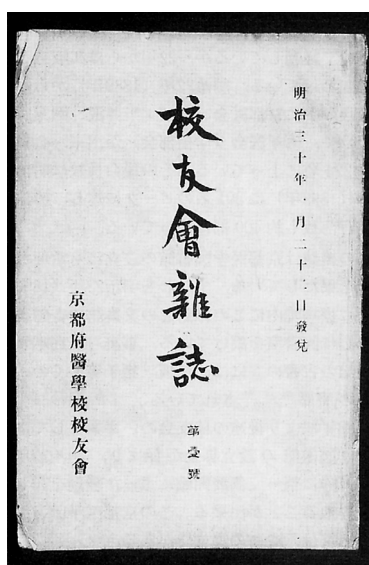 明治三十年一月二十二日發兌
校友會雜誌
第壹號
京都府醫學校校友會